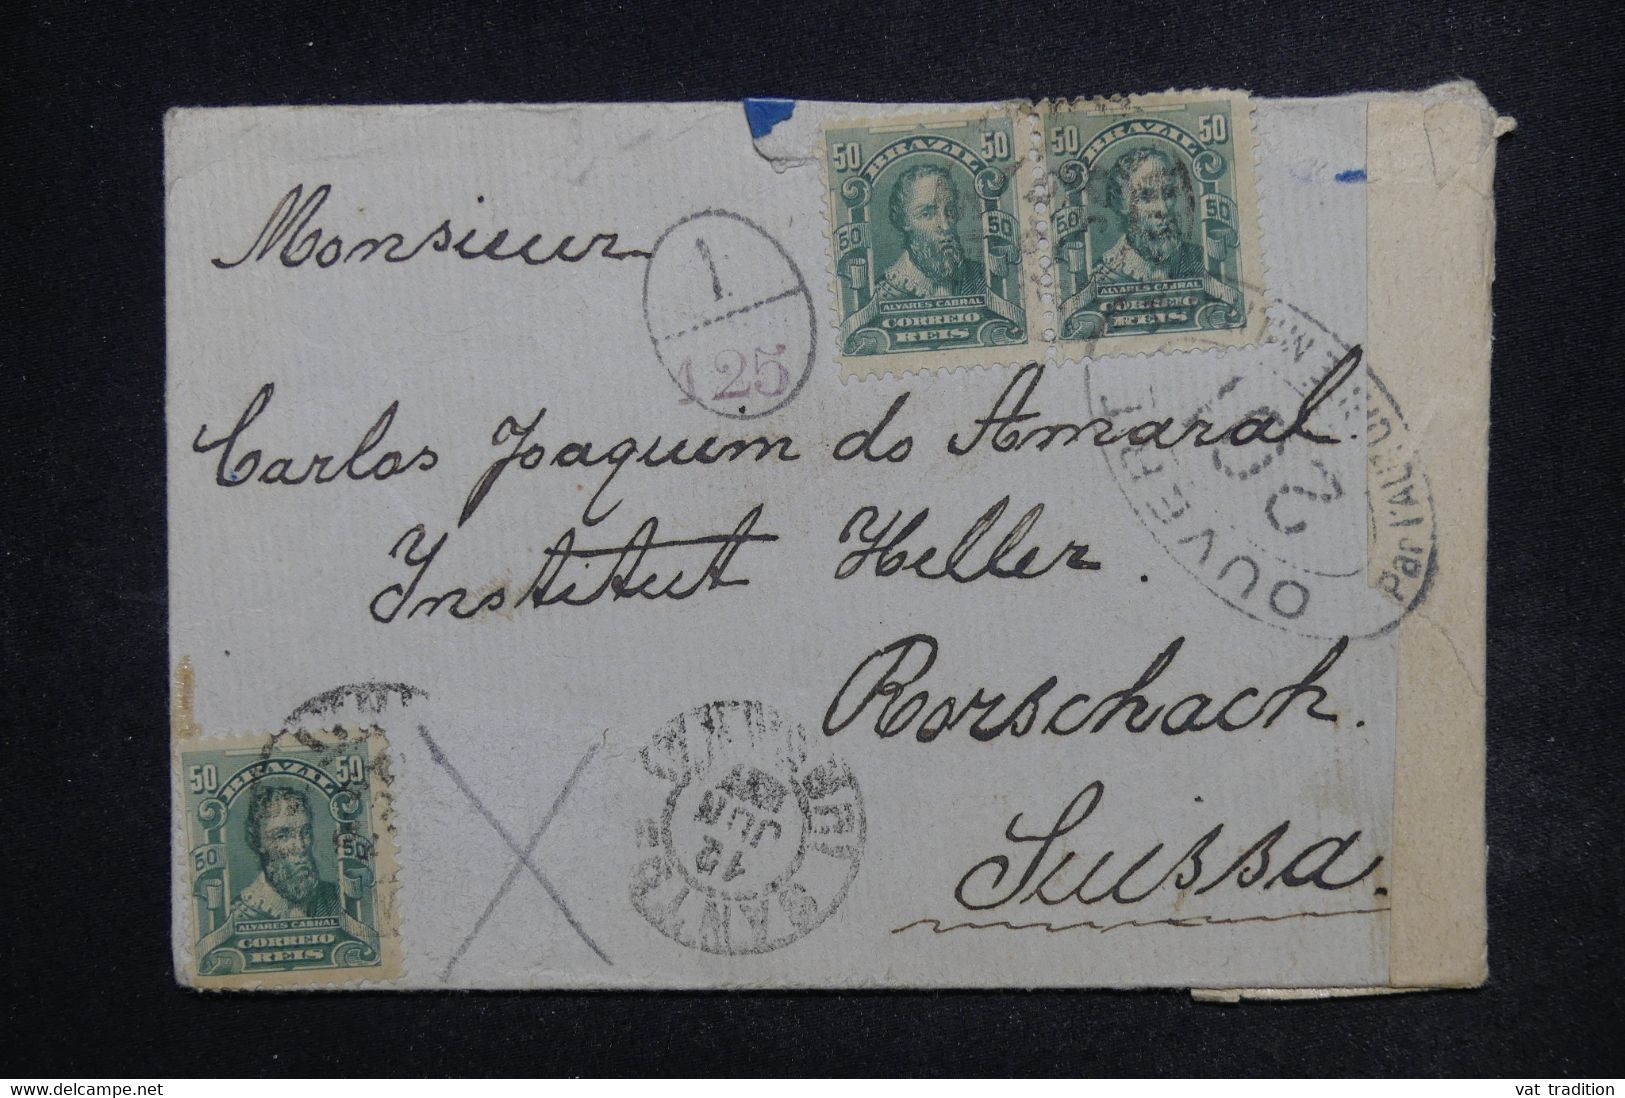 Monsieur
Carlos Joaquim do Amaral.
Institut Heller.
Rorschach.
Suissa.
50 BRAZIL 50
50 50
ALVARES CABRAL
CORREIO
REIS
50 BRAZIL 50
50 50
ALVARES CABRAL
CORREIO
REIS
50 BRAZIL 50
50 50
ALVARES CABRAL
CORREIO
REIS
1
125
OUVERT
Par l'AUTORITÉ MILITAIRE
SANTOS
12
JUN
www.delcampe.net
vat tradition